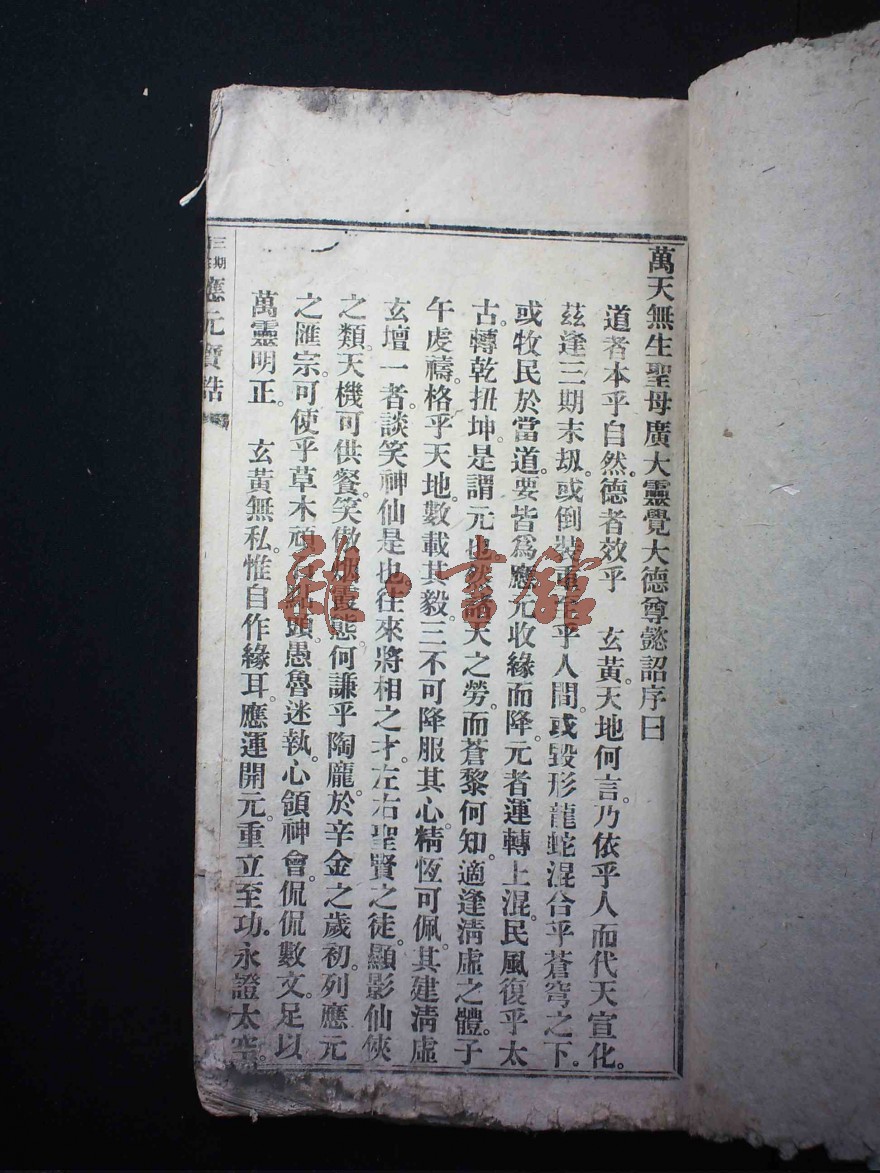 萬天無生聖母廣大靈覺大德尊懿詔序曰
道者本乎自然。德者效乎 玄黃。天地何言。乃依乎人而代天宣化。
茲逢三期末刼。或倒裝重生乎人間。或毀形龍蛇混合乎蒼穹之下。
或牧民於當道。要皆爲應元收緣而降。元者運轉上混。民風復乎太
古。轉乾扭坤。是謂元也。然諸天之勞。而蒼黎何知。適逢淸虛之體。子
午虔禱。格乎天地。數載其毅。三不可降服其心。精恆可佩。其建淸虛
玄壇一者。談笑神仙是也。往來將相之才。左右聖賢之徒。顯影仙俠
之類。天機可供餐。笑傲烟霞態。何謙乎陶龐。於辛金之歲初。列應元
之匯宗。可使乎草木頑石點頭。愚魯迷執。心領神會。侃侃數文。足以
萬靈明正。 玄黃無私。惟自作緣耳。應運開元。重立至功。永證太空。
三期應元寶誥
雅 書館